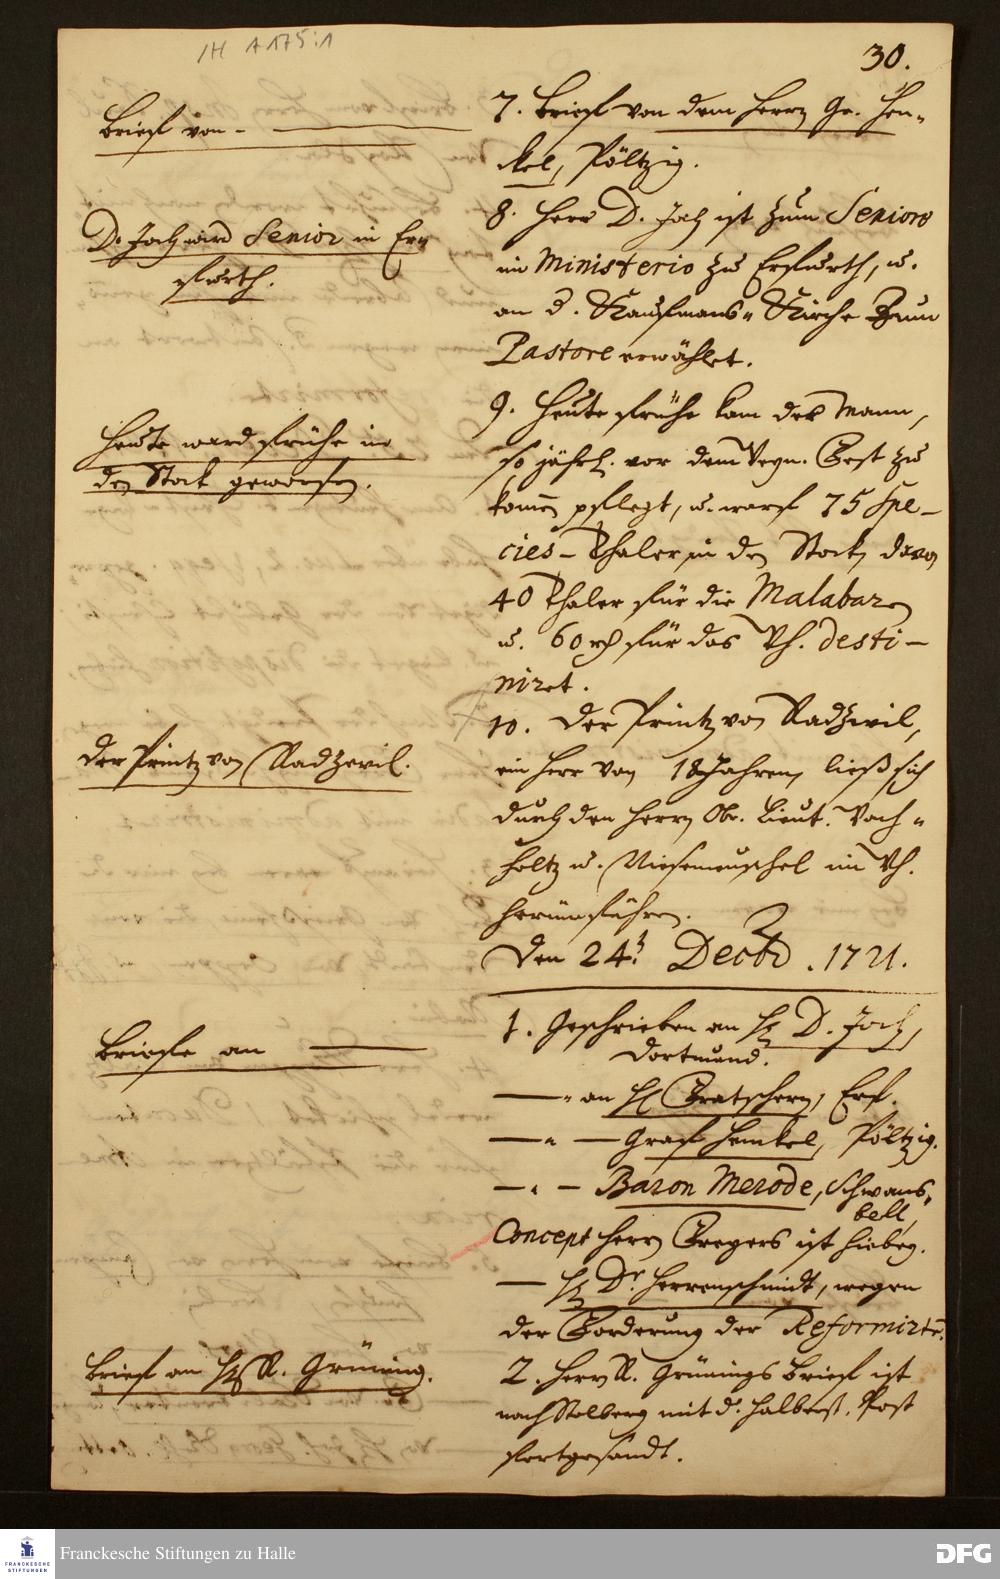 IH A 175:1
30.
Briefe von -
7. Brief von dem Herrn Gr. Hen-
ckel, Pöltzig.
D. Joch wird Senior in Er-
furth.
8. Herr D. Joch ist zum Seniore
im Ministerio zu Erffurth, u.
an d. Kauffmans-Kirche zum
Pastore erwählet.
Heute ward frühe in
den Stock geworfen.
9. Heute frühe kam der Mann,
so jährl. vor dem Fest zu
komen pflegt, u. warf 75 Spe-
cies-Thaler in den Stock, davon
40 Thaler für die Malabaren
u. 60 rh für das Wh. desti-
niret.
Der Printz von Radzevil.
10. Der Printz von Radzivil,
ein Herr von 18 Jahren, ließ sich
durch den Herrn Obr. Lieut. Vach-
holtz u. Niesemeuschel im Wh.
herümführen.
Den 24. Decbr. 1721.
Briefe an
1. Geschrieben an H. D. Joch,
Dortmund.
- an H. Gratschern, Erf.
- " - Graf Henckel, Pöltzig.
- " - Baron Merode, Schwans-
bell,
Concept Herrn Gregers ist hiebey.
- H. Dr. Herrenschmidt, wegen
der Forderung der Reformirten.
Brief an H. R. Grüning.
2. Herrn R. Grünings Brief ist
nach Stolberg mit d. Halberst. Post
fortgesandt.
Franckesche Stiftungen zu Halle
FRANCKESCHE
STIFTUNGEN
DFG